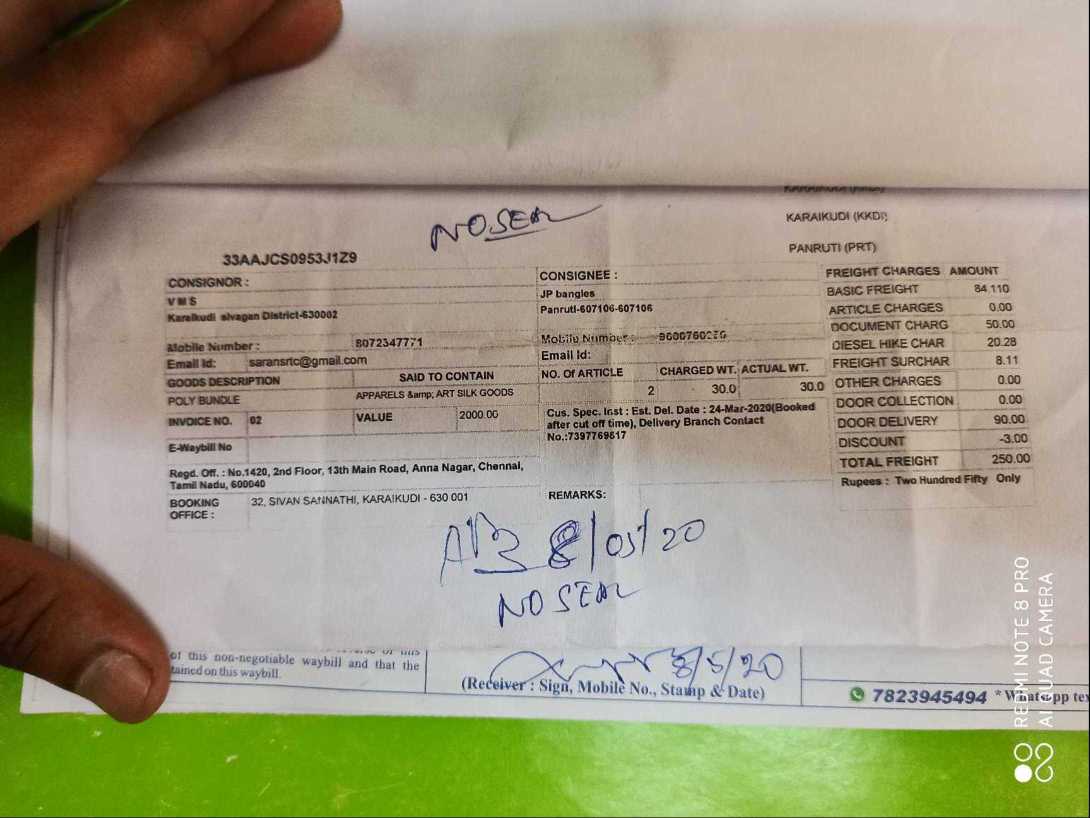 KARAIKUDI (KKDI)
NO SEAL
PANRUTI (PRT)
33AAJCS0953J1Z9
CONSIGNOR :
V M S
Karaikudi sivagan District-630002
Mobile Number : 8072347771
Email Id: saransrtc@gmail.com
GOODS DESCRIPTION SAID TO CONTAIN
POLY BUNDLE APPARELS &amp; ART SILK GOODS
INVOICE NO. 02 VALUE 2000.00
E-Waybill No
Regd. Off. : No.1420, 2nd Floor, 13th Main Road, Anna Nagar, Chennai,
Tamil Nadu, 600040
BOOKING OFFICE : 32, SIVAN SANNATHI, KARAIKUDI - 630 001
CONSIGNEE :
JP bangles
Panruti-607106-607106
Mobile Number :
Email Id:
NO. Of ARTICLE CHARGED WT. ACTUAL WT.
2 30.0 30.0
Cus. Spec. Inst : Est. Del. Date : 24-Mar-2020(Booked
after cut off time), Delivery Branch Contact
No.:7397769617
REMARKS:
FREIGHT CHARGES AMOUNT
BASIC FREIGHT 84.110
ARTICLE CHARGES 0.00
DOCUMENT CHARG 50.00
DIESEL HIKE CHAR 20.28
FREIGHT SURCHAR 8.11
OTHER CHARGES 0.00
DOOR COLLECTION 0.00
DOOR DELIVERY 90.00
DISCOUNT -3.00
TOTAL FREIGHT 250.00
Rupees : Two Hundred Fifty Only
8/05/20
NO SEAL
of this non-negotiable waybill and that the
tained on this waybill.
8/5/20
(Receiver : Sign, Mobile No., Stamp & Date)
7823945494 * Whatsapp tex
REDMI NOTE 8 PRO
AI QUAD CAMERA